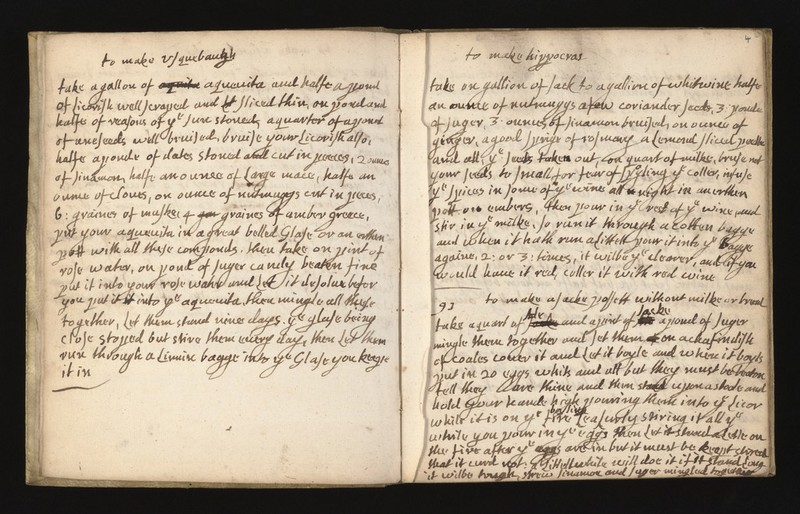 to make usquebaugh
take a gallon of aquevita and halfe a pound
of licorish well scrayed and sliced thin, on pound and
halfe of reasons of ye sune stoned, a quarter of a pound
of aneseeds well bruised, bruise your licorish also,
halfe a pounde of dates stoned and cut in peeces, 2 ounces
of sinamon, halfe an ounce of large mace, halfe an
ounce of cloues, on ounce of nutmuggs cut in peces,
6: graines of muske, 4 graines of amber greece,
put your aquevita in a great belled glase or an earthen
pott with all these componds. then take on pint of
rose water, on pound of suger candy beaten fine
put it into your rose water and let it disolue befor
you put it into ye aquevita, then mingle all these
together, let them stand nine days. ye glase being
close stopped but stire them euery day, then let them
run through a linnin bagge into ye glase you keepe
it in
4
to make hippocras
take on gallion of sack to a gallion of whit wine halfe
an ounce of nutmuggs a few coriander seeds, 3 pounde
of suger, 3 ounces of sinamon bruised, on ounce of
ginger, a good sprige of rosmary a lemond sliced
and all ye seeds taken out on quart of milke, bruse not
your seeds to small for fear of spyling ye coller, infuse
ye spices in some of ye wine all night in an erthen
pott on embers, then pour in ye rest of ye wine, and
stir in ye milke, so run it through a cotten bagge
and when it hath run a littell pour it into ye bagge
againe, 2: or 3: times, it wilbe ye clearer, and if you
would haue it red, coller it with red wine
93 to make a sacke possett without milke or bread
take a quart of and a pint of sacke a pound of suger
mingle them together and set them on a chafindish
of coales couer it and let it boyle and when it boyls
put in 20 eggs whits and all but they must be beaten
tell they are thine and then stand upon a stoole and
hold your hande high pouring them into ye licor
while it is on ye fire boyling leasurly stiring it all ye
while you pour in ye eggs then let it stand a letle on
the fire after ye eggs are in but it must be kept stired
that it curd not, a littell while will doe it if it stand long
it wilbe tough, strow sinamon and suger mingled together